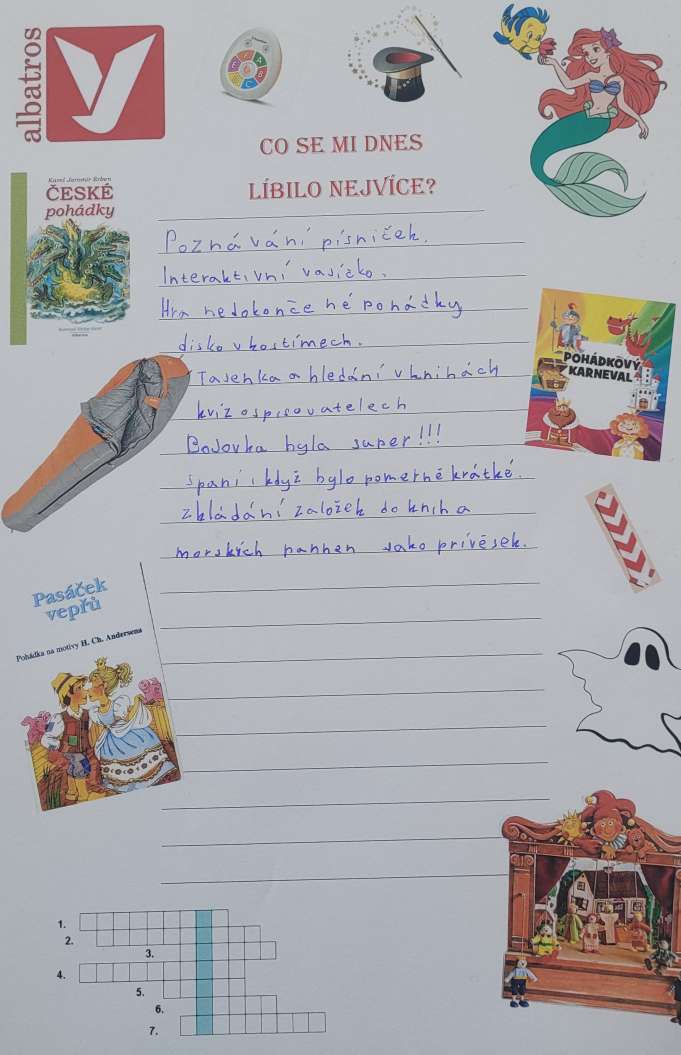 albatros
CO SE MI DNES
LÍBILO NEJVÍCE?
Karel Jaromír Erben
ČESKÉ
pohádky
Poznávání písniček.
Interaktivní vajíčko.
Hra nedokončené pohádky
disko v kostímech.
Tajenka a hledání v knihách
kvíz o spisovatelech
Bojovka byla super!!!
spaní i když bylo poměrně krátké.
zkládání založek do knih a
morskích pannen jako privěsek.
POHÁDKOVÝ
KARNEVAL
Pasáček
vepřů
Pohádka na motivy H. Ch. Andersena
1.
2.
3.
4.
5.
6.
7.